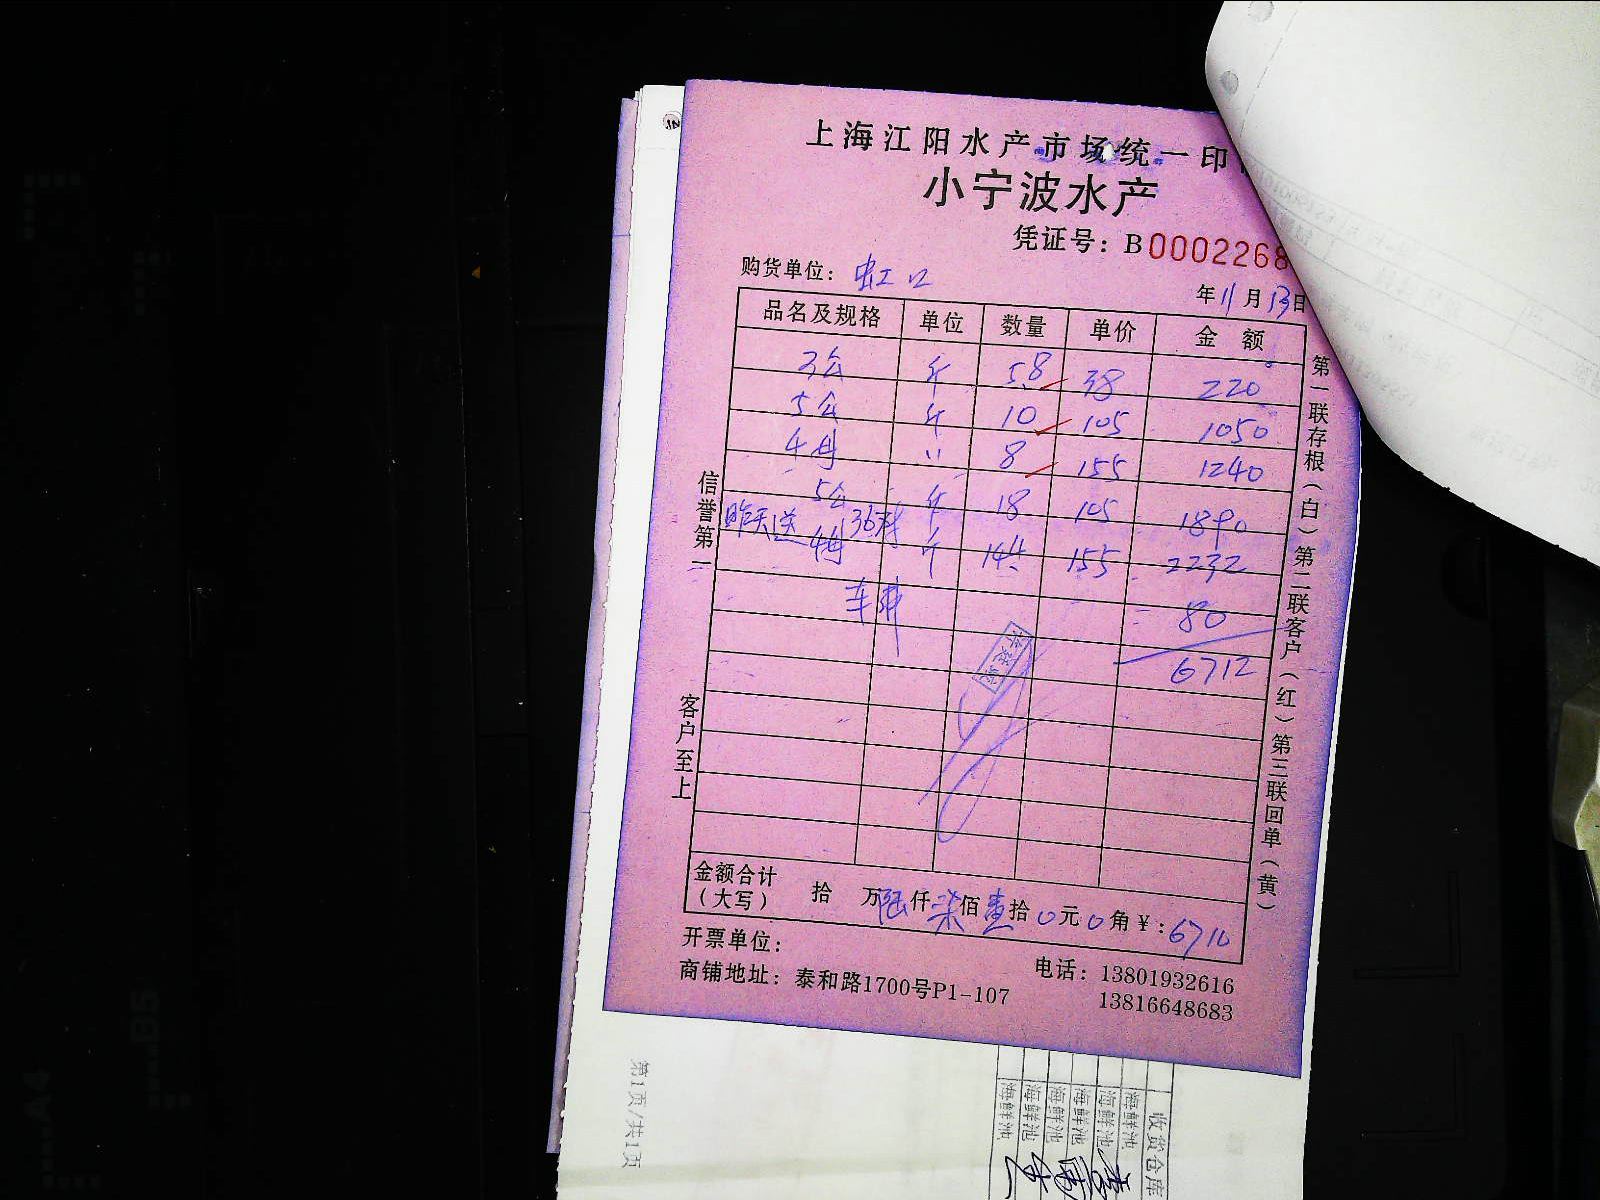 上海江阳水产市场统一印
小宁波水产
凭证号：B0002268
购货单位：虹口
年11月13日
品名及规格 单位 数量 单价 金 额
3公 斤 5.8 38 220
5公 斤 10 105 1050
4母 〃 8 155 1240
5公 斤 18 105 1890
昨天送 36
4母 斤 155 2232
车费 80
6712
金额合计（大写） 拾 万陆仟柒佰壹拾0元0角￥：6710
开票单位：
商铺地址：泰和路1700号P1-107
电话：13801932616
13816648683
信誉第一
客户至上
第一联存根（白）第二联客户（红）第三联回单（黄）
第1页/共1页
收货仓库
海鲜池
海鲜池
海鲜池
海鲜池
海鲜池
海鲜池
A4
B5